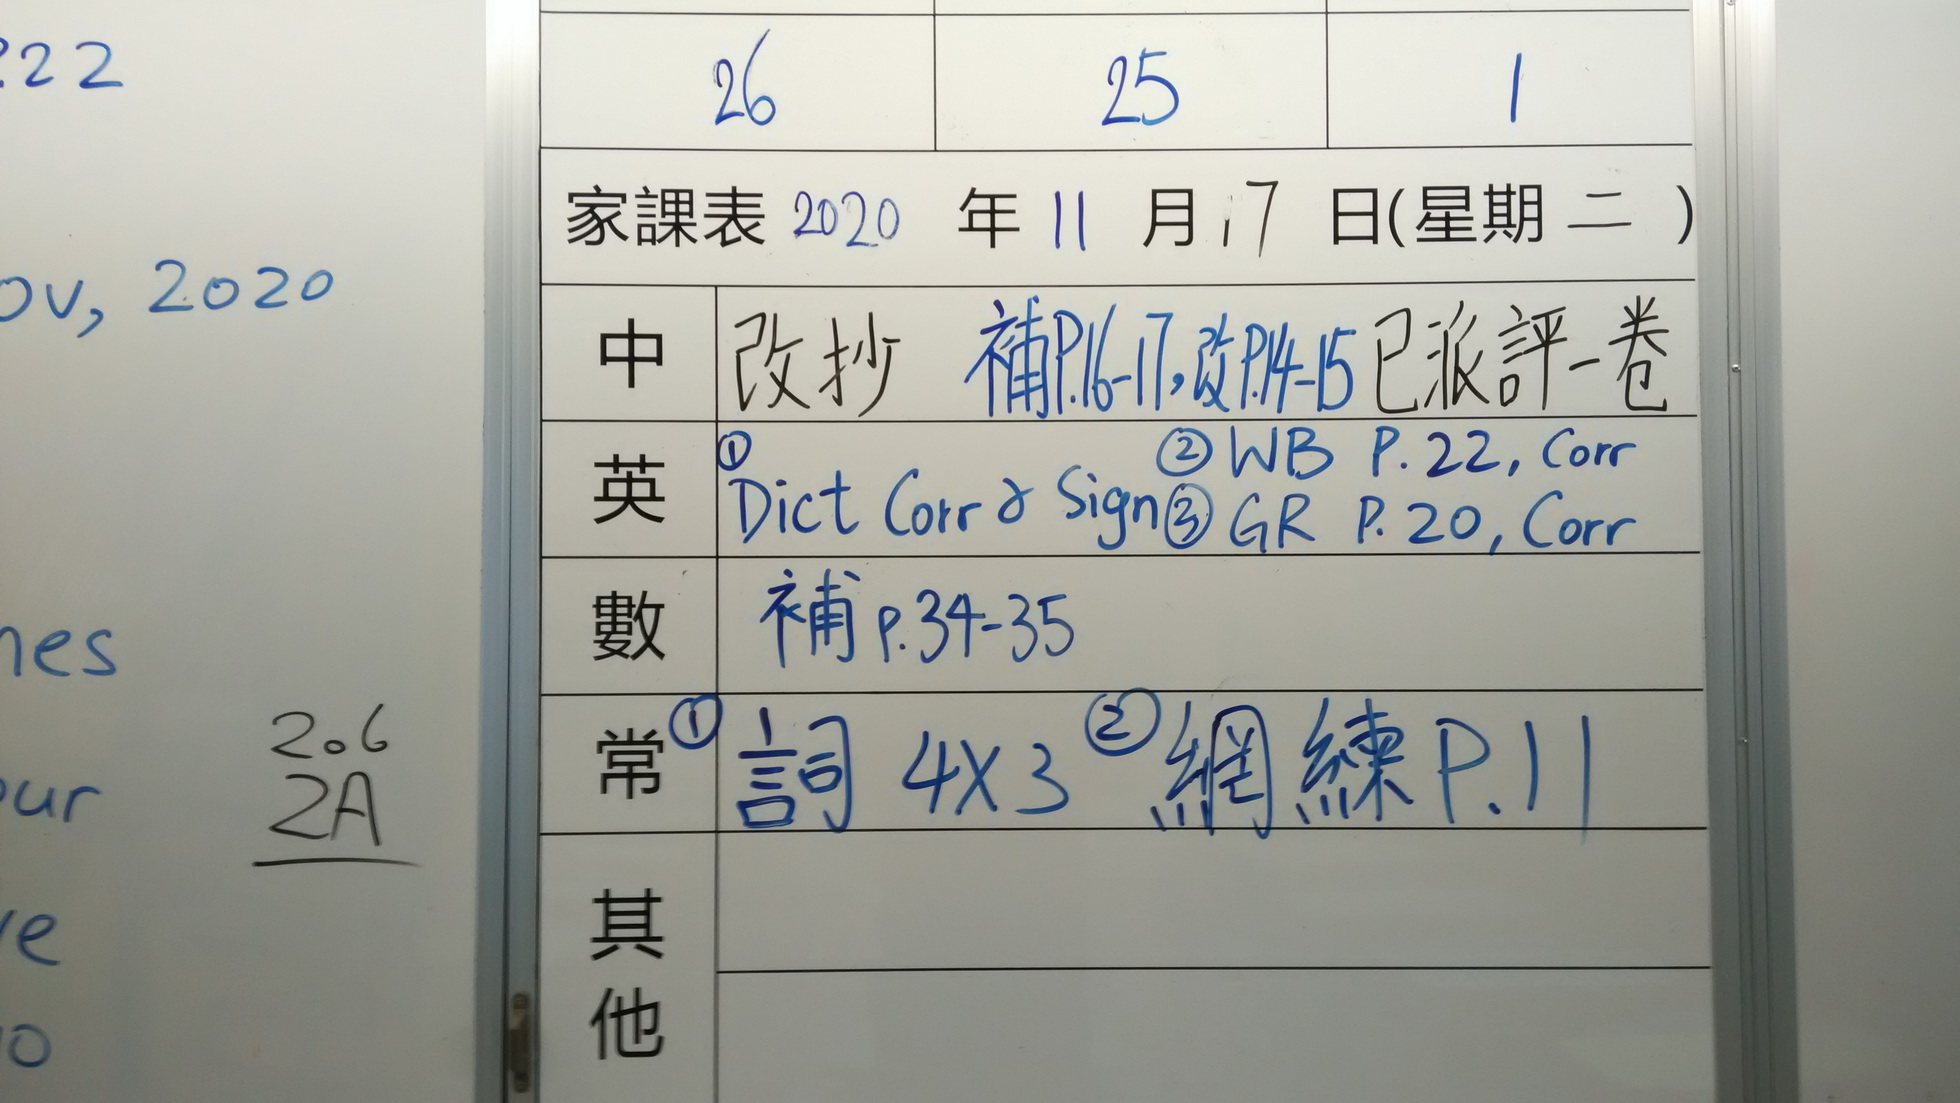 222
ov, 2020
nes
our
ve
206
2A
26 25 1
家課表 2020 年 11 月 17 日(星期 二 )
中 改抄 補P.16-17,改P.14-15 已派評一卷
英 ① Dict Corr & Sign ② WB P.22, Corr
③ GR P.20, Corr
數 補 p.34-35
常 ① 詞 4X3 ② 網練 P.11
其他